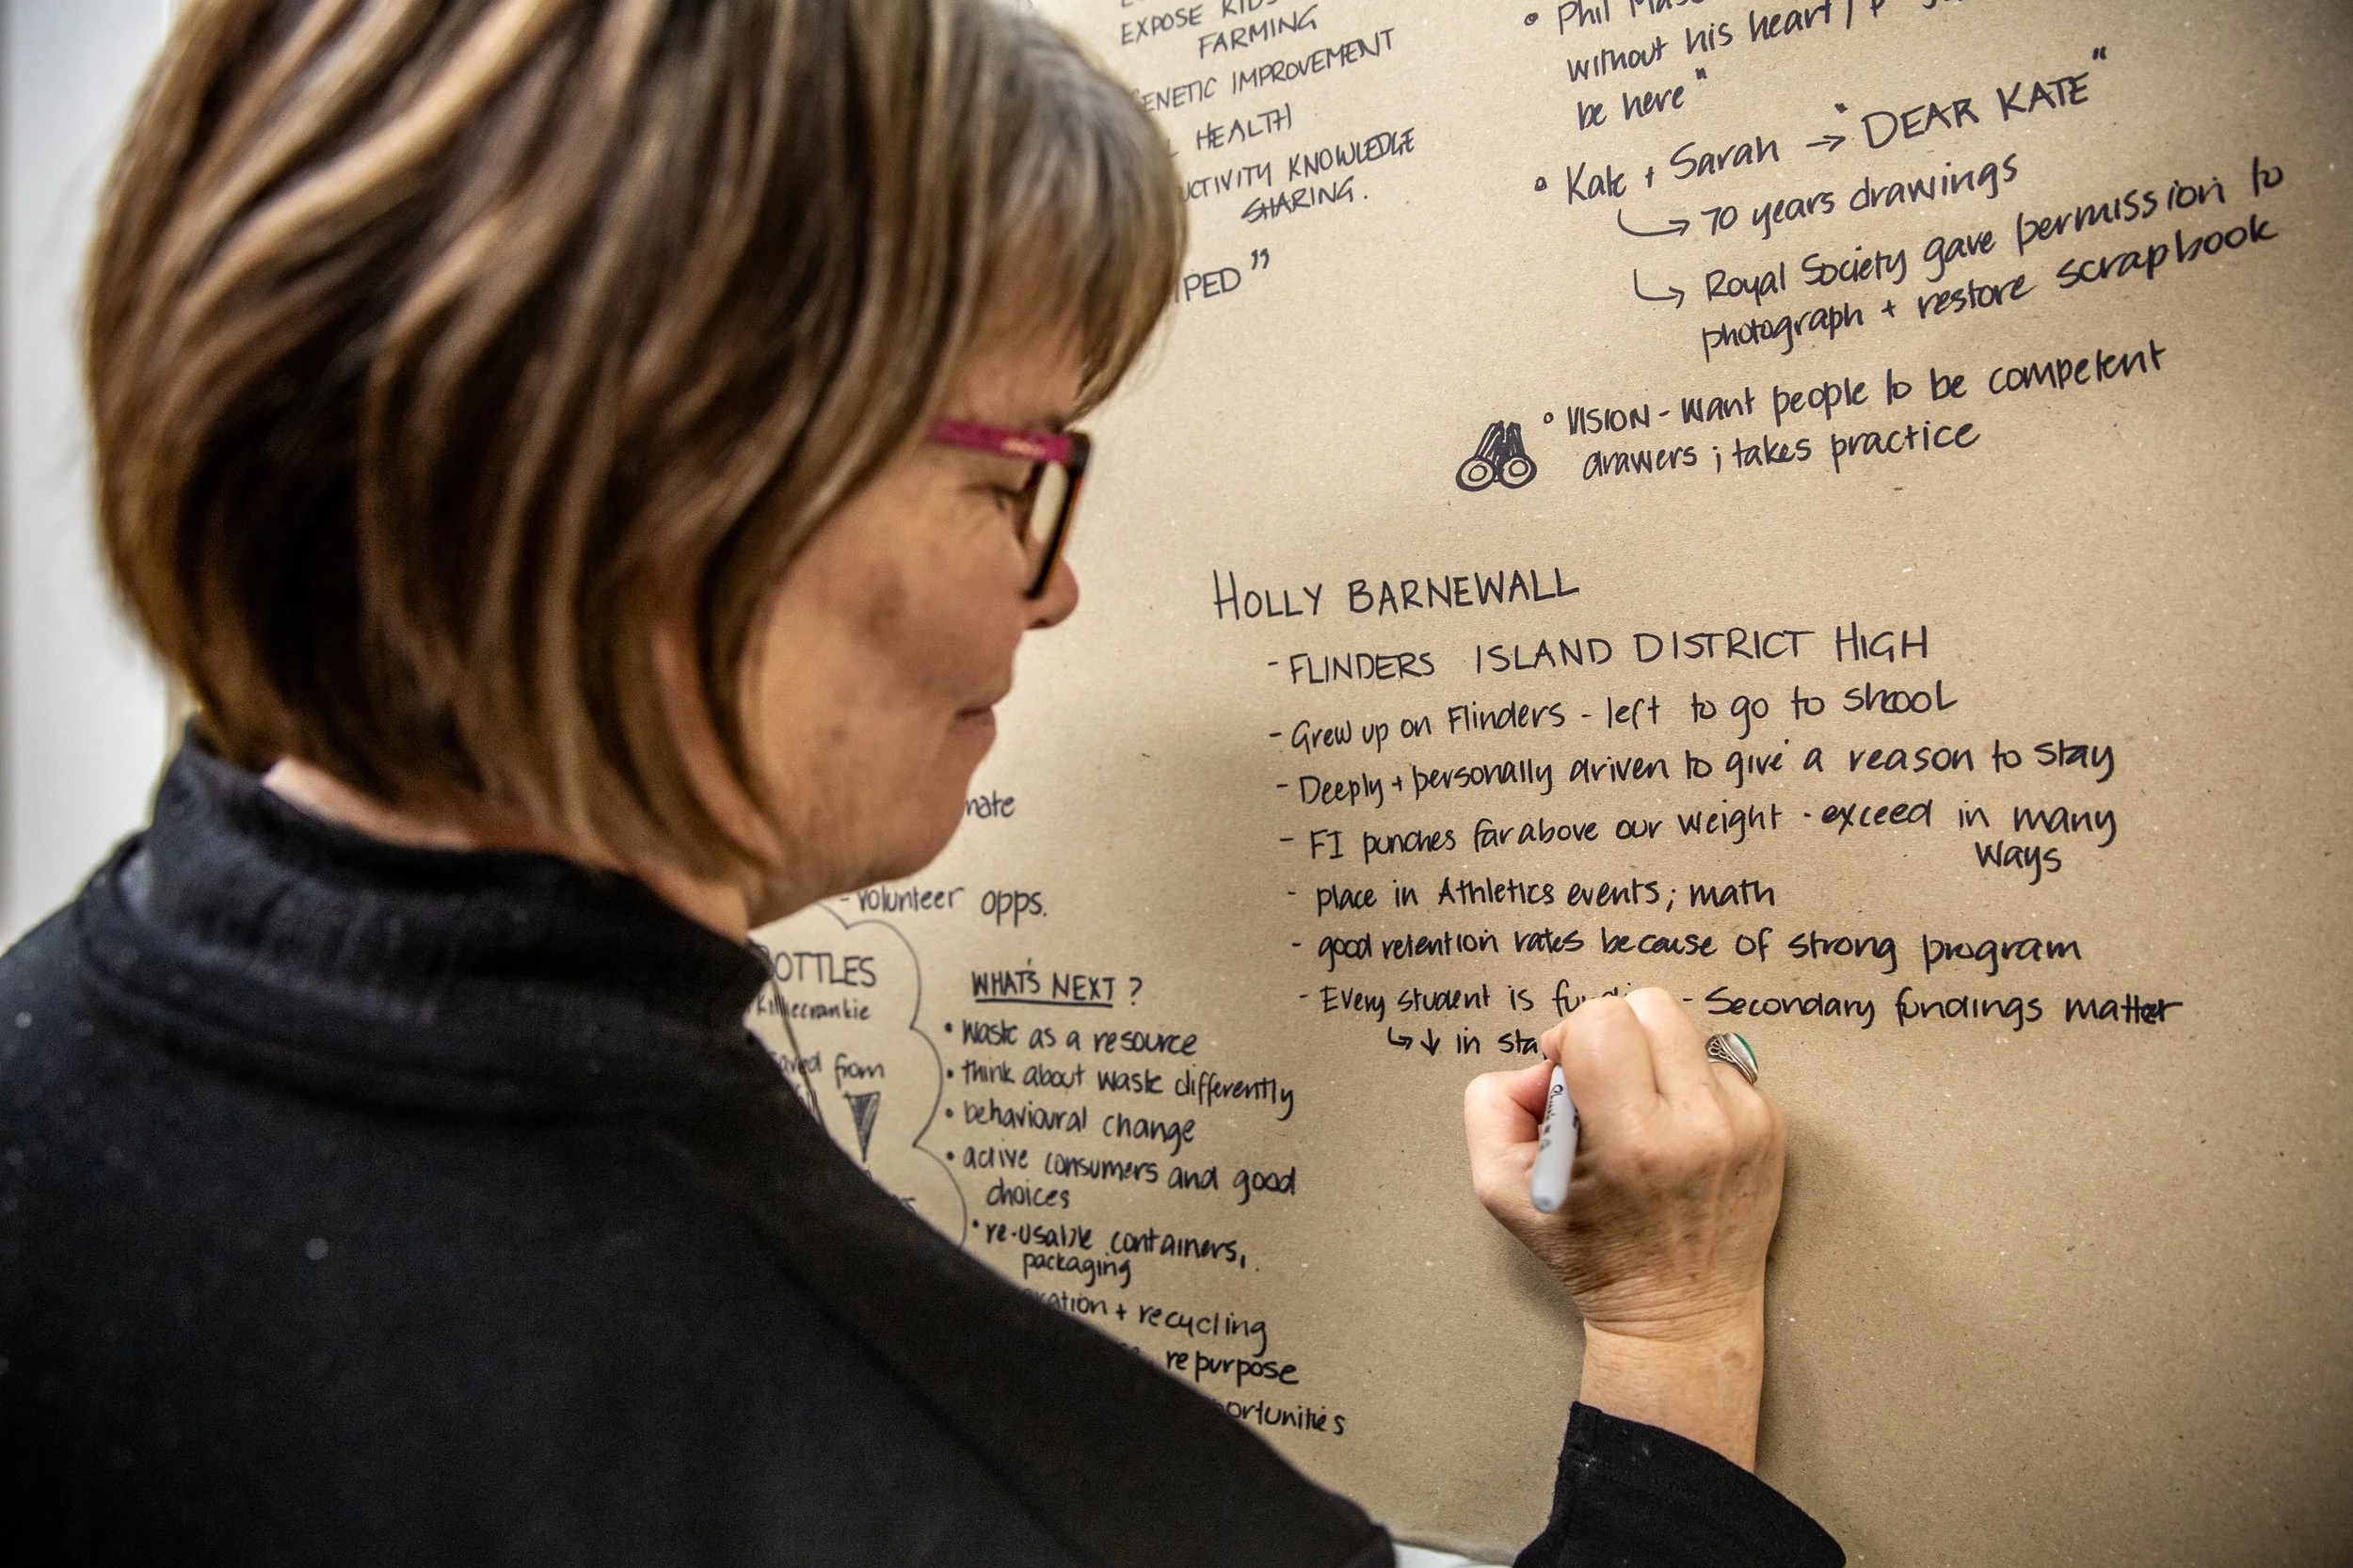 EXPOSE KIDS
FARMING
GENETIC IMPROVEMENT
HEALTH
KNOWLEDGE
SHARING.
• Phil
without his heart /
be here"
• Kate + Sarah → "DEAR KATE"
↳ 70 years drawings
↳ Royal Society gave permission to
photograph + restore scrapbook
• VISION - Want people to be competent
drawers ; takes practice
HOLLY BARNEWALL
- FLINDERS ISLAND DISTRICT HIGH
- Grew up on Flinders - left to go to school
- Deeply + personally driven to give a reason to stay
- FI punches far above our weight - exceed in many
ways
- place in Athletics events ; math
- good retention rates because of strong program
- Every student is - Secondary fundings matter
↳ ↓ in
- volunteer opps.
BOTTLES
Killiecrankie
saved from
WHAT'S NEXT ?
• Waste as a resource
• think about waste differently
• behavioural change
• active consumers and good
choices
• re-usable containers,
packaging
+ recycling
repurpose